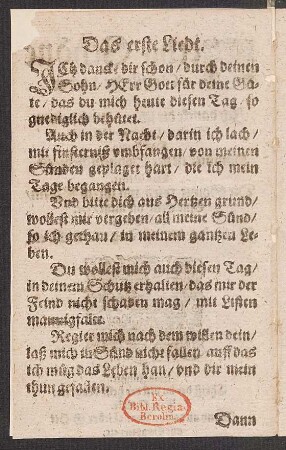 Das erste Liedt.
ICh danck dir schon / durch deinen
Sohn / HErr Gott für deine Gü-
te / das du mich heute diesen Tag / so
gnediglich behütet.
Auch in der Nacht / darin ich lach /
mit finsterniß vmbfangen / von meinen
Sünden geplaget hart / die ich mein
Tage begangen.
Vnd bitte dich aus Hertzen grund /
wollest mir vergeben / all meine Sünd /
so ich gethan / in meinem gantzen Le-
ben.
Du wollest mich auch diesen Tag /
in deinem Schutz erhalten / das mir der
Feind nicht schaden mag / mit Listen
mannigfalt.
Regier mich nach dem willen dein /
laß mich in Sünd nicht fallen / auff das
ich müg das Leben han / vnd dir mein
thun gefallen.
Ex
Bibl. Regia
Berolin.
Dann